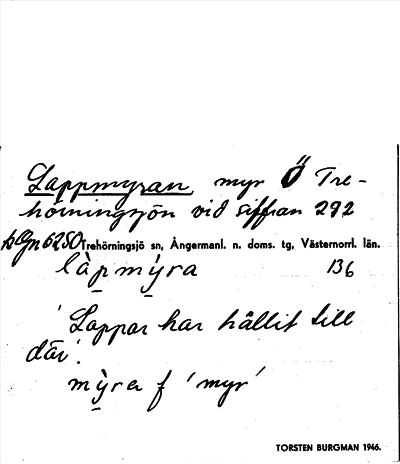 Lappmyran, myr Ö Tre-
hörningsjön vid siffran 292
på Gn 6250 Trehörningsjö sn, Ångermanl. n. doms. tg, Västernorrl. län.
làpmýra 136
'Lappar har hållit till
där'.
mỳra f 'myr'
TORSTEN BURGMAN 1946.